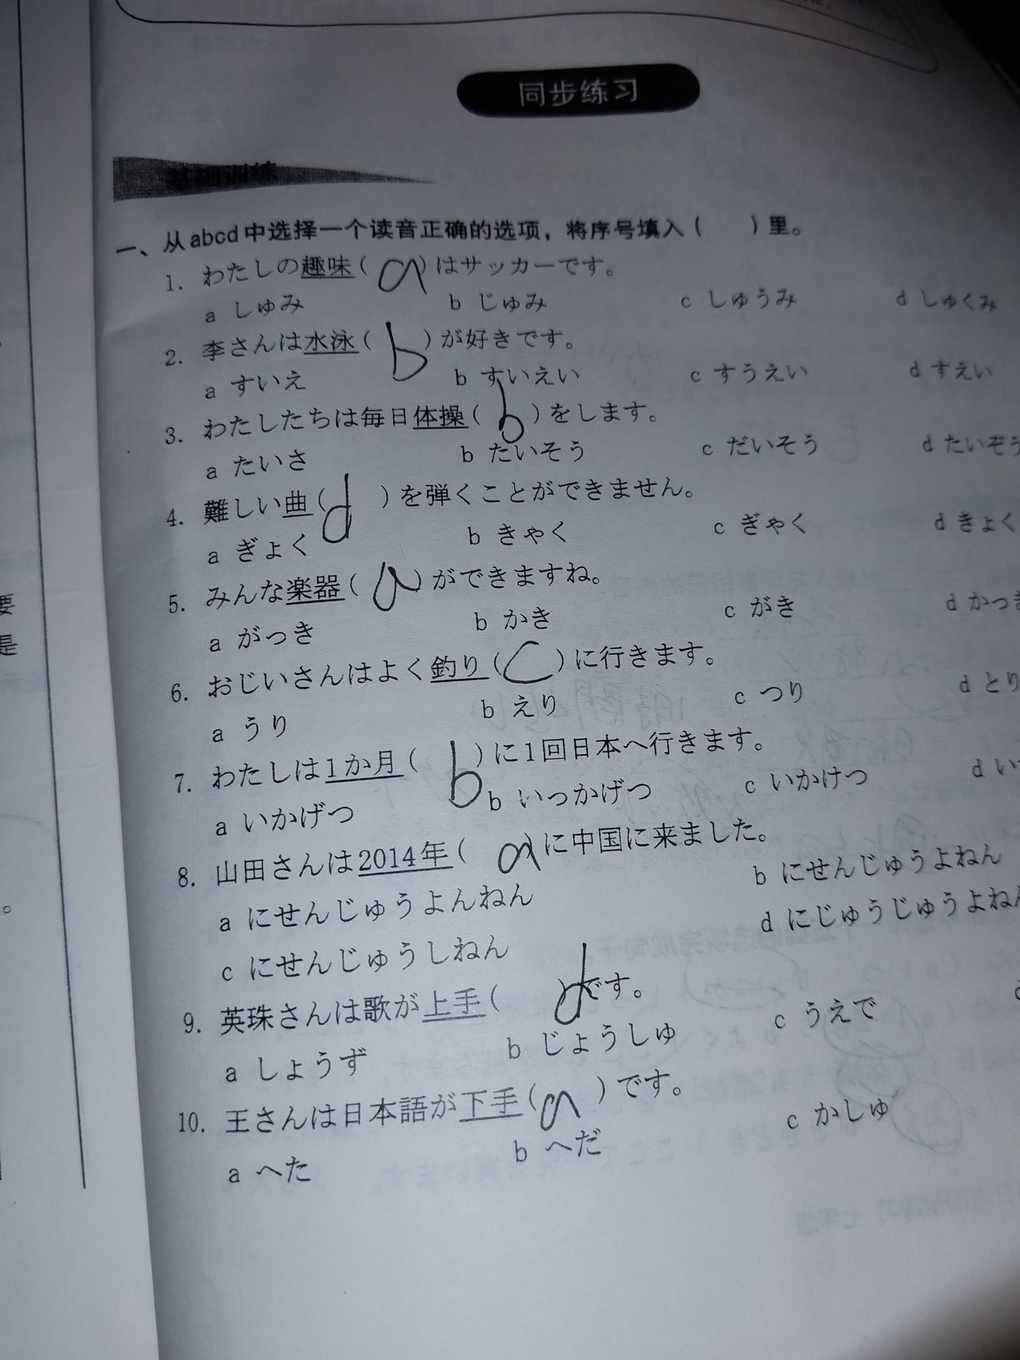 同步练习
基础训练
一、从abcd中选择一个读音正确的选项，将序号填入（ ）里。
1. わたしの趣味( a )はサッカーです。
a しゅみ b じゅみ c しゅうみ d しゅくみ
2. 李さんは水泳( b )が好きです。
a すいえ b すいえい c すうえい d すえい
3. わたしたちは毎日体操( b )をします。
a たいさ b たいそう c だいそう d たいぞう
4. 難しい曲( d )を弾くことができません。
a ぎょく b きゃく c ぎゃく d きょく
5. みんな楽器( a )ができますね。
a がっき b かき c がき d かっき
6. おじいさんはよく釣り( c )に行きます。
a うり b えり c つり d とり
7. わたしは1か月( b )に1回日本へ行きます。
a いかげつ b いっかげつ c いかけつ d
8. 山田さんは2014年( a )に中国に来ました。
a にせんじゅうよんねん b にせんじゅうよねん
c にせんじゅうしねん d にじゅうじゅうよねん
9. 英珠さんは歌が上手( d )です。
a しょうず b じょうしゅ c うえで
10. 王さんは日本語が下手( a )です。
a へた b へだ c かしゅ
要
是